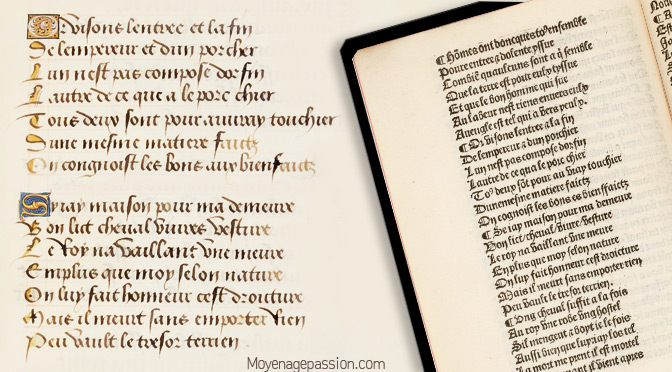 Or visons lentree et la fin
De lempereur et dun porcher
Lun nest pas compose dor fin
Lautre de ce que a le porc chier
Tous deux sont pour au vray touchier
Dune mesme matiere faictz
On congnoist les bons aux bienfaictz
Se iay maison pour ma demeure
Bon lict cheual viures vesture
Le Roy na vaillant vne meure
Emplus que moy selon nature
On luy fait honneur cest droicture
Mais il meurt sans emporter rien
Peu vault le tresor terrien
¶ Hõmes ont doncques to9 ensemble
Poure entree & dolente yssue
Combiẽ quaulcuns sont a q̃ semble
Que la terre est pour eulx tyssue
Et que le bon homme qui sue
Au labeur nest riens enuers eulx
Aueugle est tel qui a vers yeulx.
¶ Or visons lentree a la fin
De lempereur & dun porchier
Lun nest pas compose dor fin
Lautre de ce que le porc chier
To9 deux sõt pour au vray touchier
Dune mesme matiere faictz
On cognoist les bõs es biẽ faictz
¶ Se iay maison pour ma demeure
Bon lict/ cheual/ viure/ vesture
Le roy na vaillant vne meure
En plus que moy selon nature
On luy fait honneur cest droicture
Mais il meurt sans emporter rien
Peu vault le tresor terrien.
¶ Ung cheual suffit a la fois
Au roy vne robe vng hostel
Sil mengent & boyt ie le fois
Aussi bien que luy iay los tel
La mort me prent il est mortel
il vient apres
Moyenagepassion.com